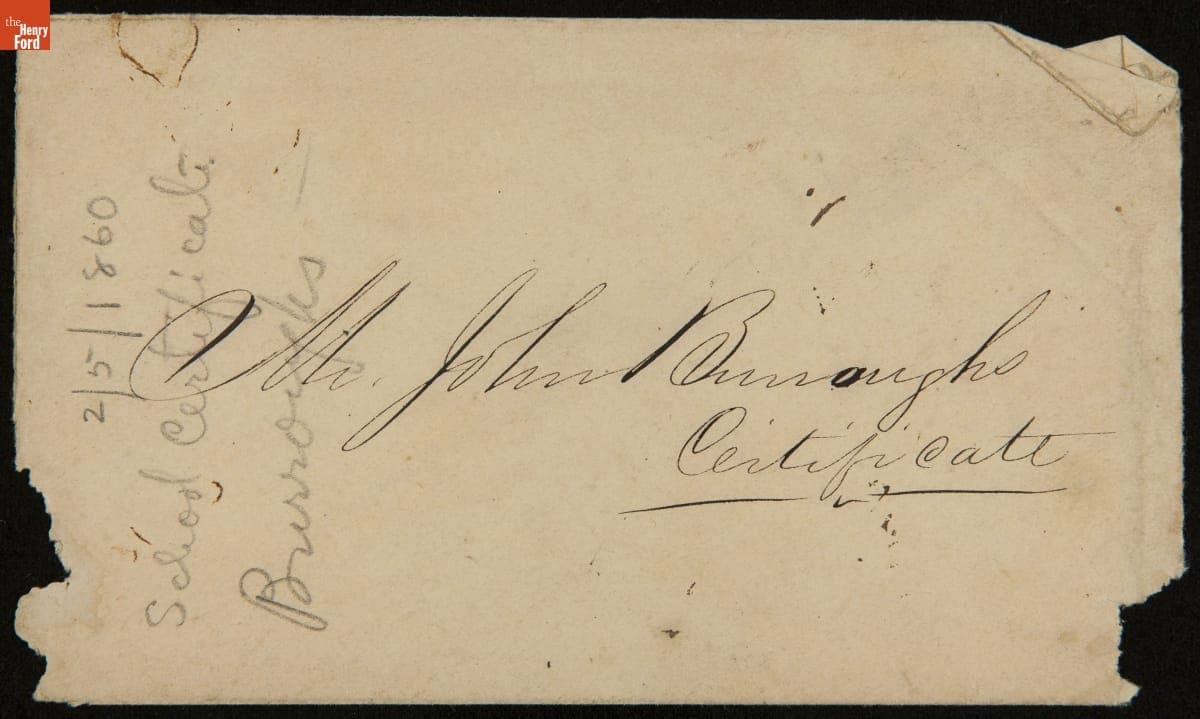 the
Henry
Ford
2/5/1860
School Certificate
Burroughs
Mr. John Burroughs
Certificate